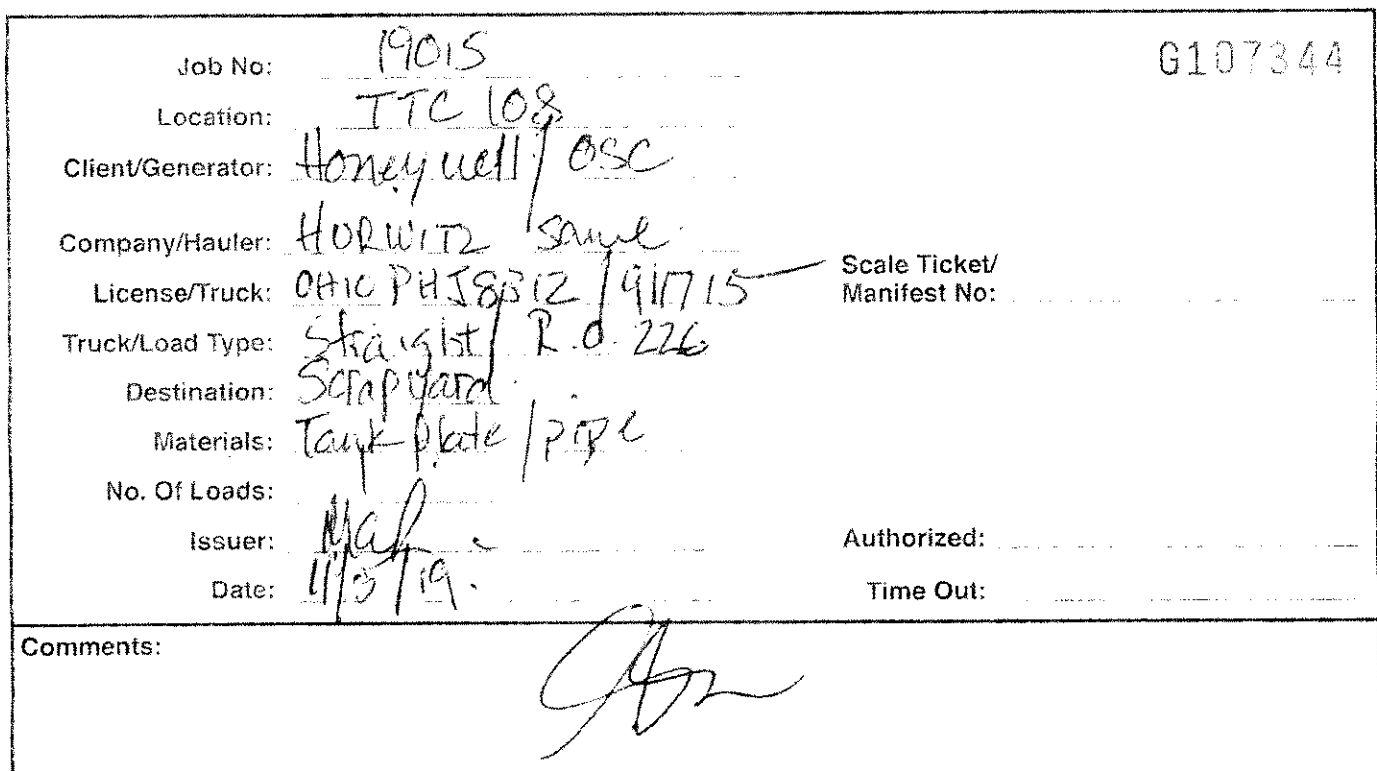 G107344
Job No: 19015
Location: TTC 108
Client/Generator: Honeywell / OSC
Company/Hauler: HURWITZ Same
License/Truck: OHIO PHJ8312 / 911715
Scale Ticket/
Manifest No:
Truck/Load Type: Straight / R.O. 226
Destination: Scrapyard
Materials: Tank plate / pipe
No. Of Loads:
Issuer:
Authorized:
Date: 11/3/19.
Time Out:
Comments: